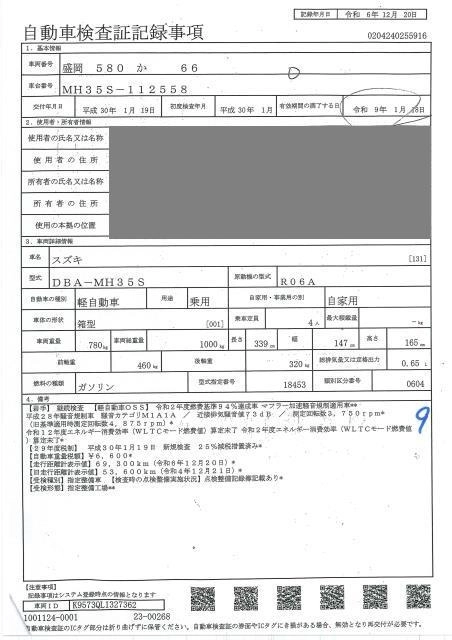 記録年月日 令和 6年12月 20日
自動車検査証記録事項 0204240255916
1. 基本情報
車両番号 盛岡 580 か 66
車台番号 MH35S-112558
交付年月日 平成 30年 1月 19日 初度検査年月 平成 30年 1月 有効期間の満了する日 令和 9年 1月 18日
2. 使用者・所有者情報
使用者の氏名又は名称
使用者の住所
所有者の氏名又は名称
所有者の住所
使用の本拠の位置
3. 車両詳細情報
車名 スズキ [131]
型式 DBA-MH35S 原動機の型式 R06A
自動車の種別 軽自動車 用途 乗用 自家用・事業用の別 自家用
車体の形状 箱型 [001] 乗車定員 4人 最大積載量 -kg
車両重量 780kg 車両総重量 1000kg 長さ 339cm 幅 147cm 高さ 165cm
前軸重 460kg 後軸重 320kg 総排気量又は定格出力 0.65 L
燃料の種類 ガソリン 型式指定番号 18453 類別区分番号 0604
4. 備考
【岩手】 継続検査 【軽自動車OSS】 令和2年度燃費基準94%達成車 マフラー加速騒音規制適用車**
平成28年騒音規制車 騒音カテゴリM1A1A / 近接排気騒音値73dB / 測定回転数3,750rpm**
(旧基準適用時測定回転数4,875rpm)*
令和12年度エネルギー消費効率(WLTCモード燃費値)算定未了 令和2年度エネルギー消費効率(WLTCモード燃費値
)算定未了*
【29年度税制】 平成30年1月19日 新規検査 25%減税措置済み*
【自動車重量税額】¥6,600*
【走行距離計表示値】69,300km(令和6年12月20日)
【旧走行距離計表示値】53,600km(令和4年12月21日)*
【受検種別】指定整備車 【検査時の点検整備実施状況】点検整備記録簿記載あり*
【受検形態】指定整備工場**
9
【注意事項】
記録事項はシステム登録時点の情報となります
車両ID K9573QL1327362
1001124-0001 23-00268
自動車検査証のICタグ部分は折り曲げずに保管ください。自動車検査証の券面やICタグにき損がある場合、無効となり再交付が必要です。